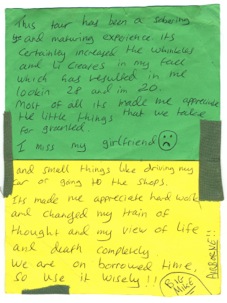 This tour has been a sobering
and maturing experience. its
certaintly increased the whinkles
and creases in my face
which has resulted in me
lookin 28 and im 20.
Most of all its made me appreciate
the little things that we take
for granted.
I miss my girlfriend
and small things like driving my
car or going to the shops.
Its made me appreciate hard work
and changed my train of
thought and my view of life
and death completely.
We are on borrowed time,
so use it wisely!!
BIG
MIKE
AIRBORNE!!